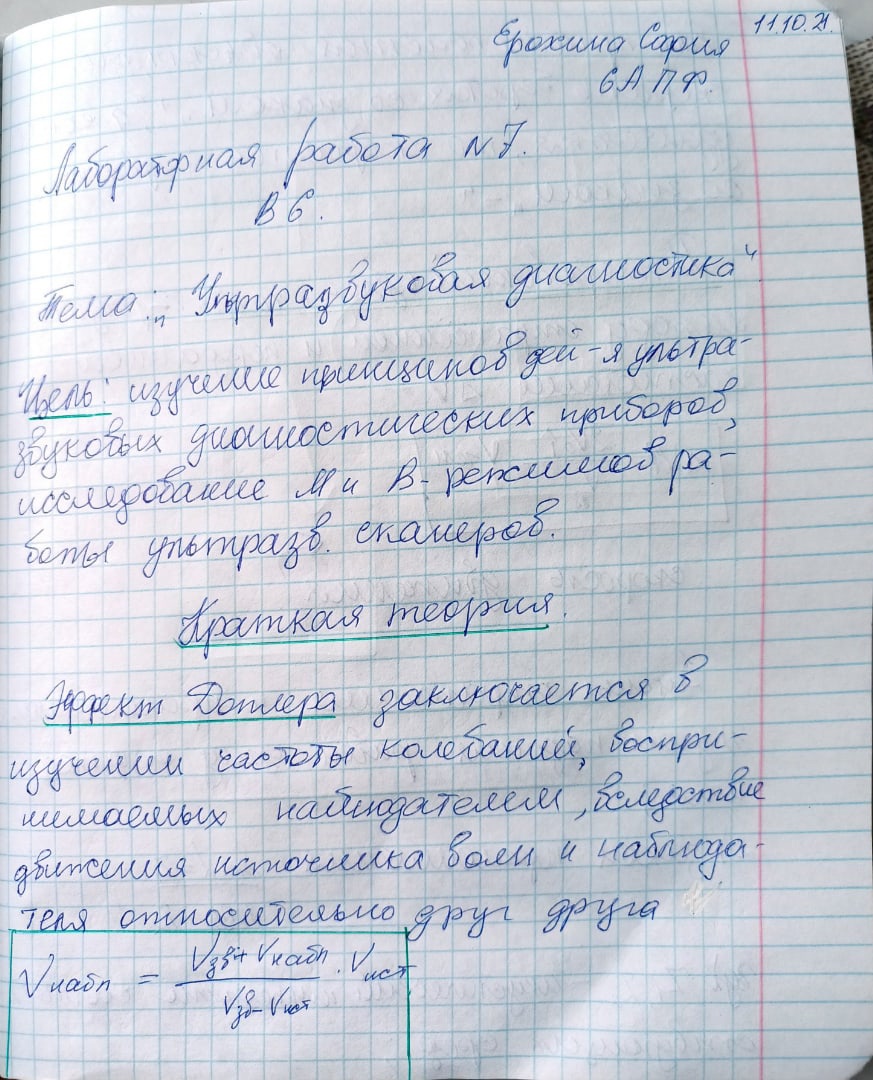 11.10.21.
Ерохина София
6А ПФ.
Лабораторная работа N 7.
В 6.
Тема: „Ультразвуковая диагностика“
Цель: изучение принципов дей-я ультра-
звуковых диагностических приборов,
исследование М и В-режимов ра-
боты ультразв. сканеров.
Краткая теория.
Эффект Доплера заключается в
изучении частоты колебаний, воспри-
нимаемых наблюдателем, вследствие
движения источника волн и наблюда-
теля относительно друг друга
νнабл = Vзв + Vнабл / Vзв - Vист · νист